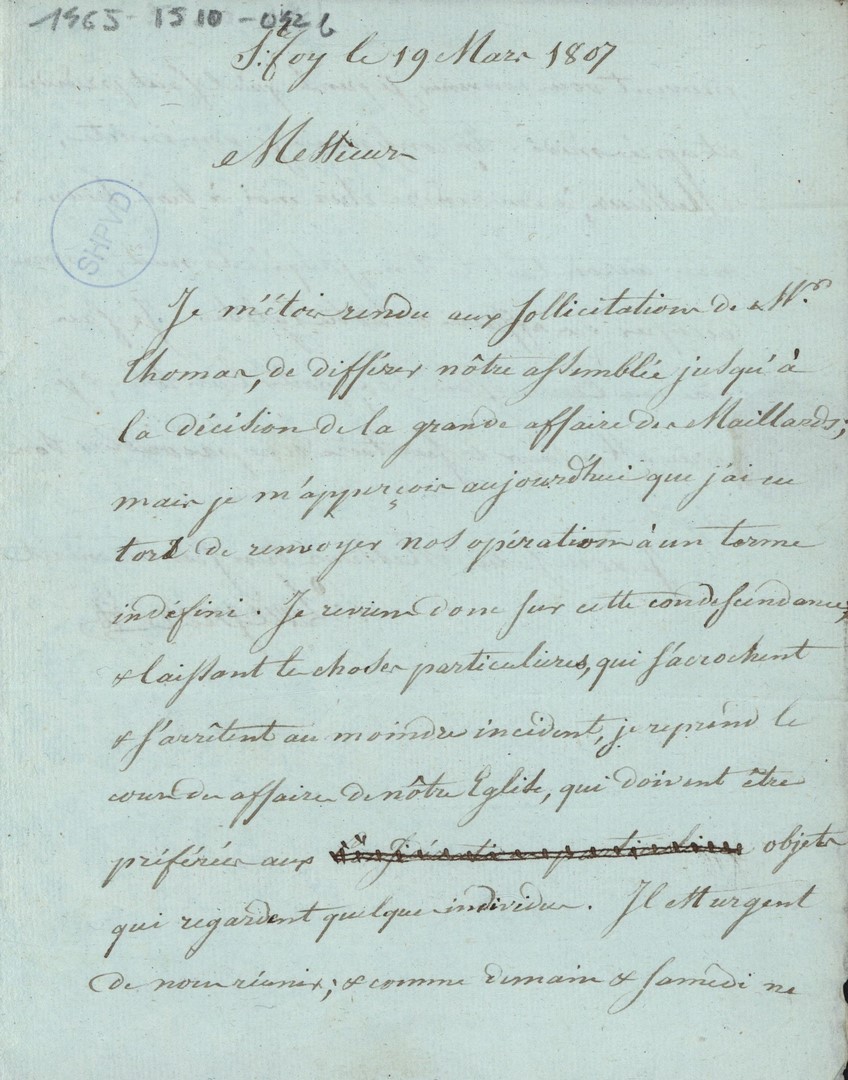 1965-1510-042 6
St. Foy le 19 Mars 1807
Messieurs
SHPVD
Je m'étois rendu aux sollicitations de Mr.
Thomas, de différer nôtre assemblée jusqu'à
la décision de la grande affaire des Maillards;
mais je m'apperçois aujourd'hui que j'ai eu
tort de renvoyer nos opérations à un terme
indéfini. Je reviens donc sur cette condescendance;
& laissant les choses particulieres, qui s'acrochent
& s'arrêtent au moindre incident, je reprend le
cours des affaires de nôtre Eglise, qui doivent être
préférées aux objets
qui regardent quelques individus. Il est urgent
de nous réunir; & comme demain & samêdi ne